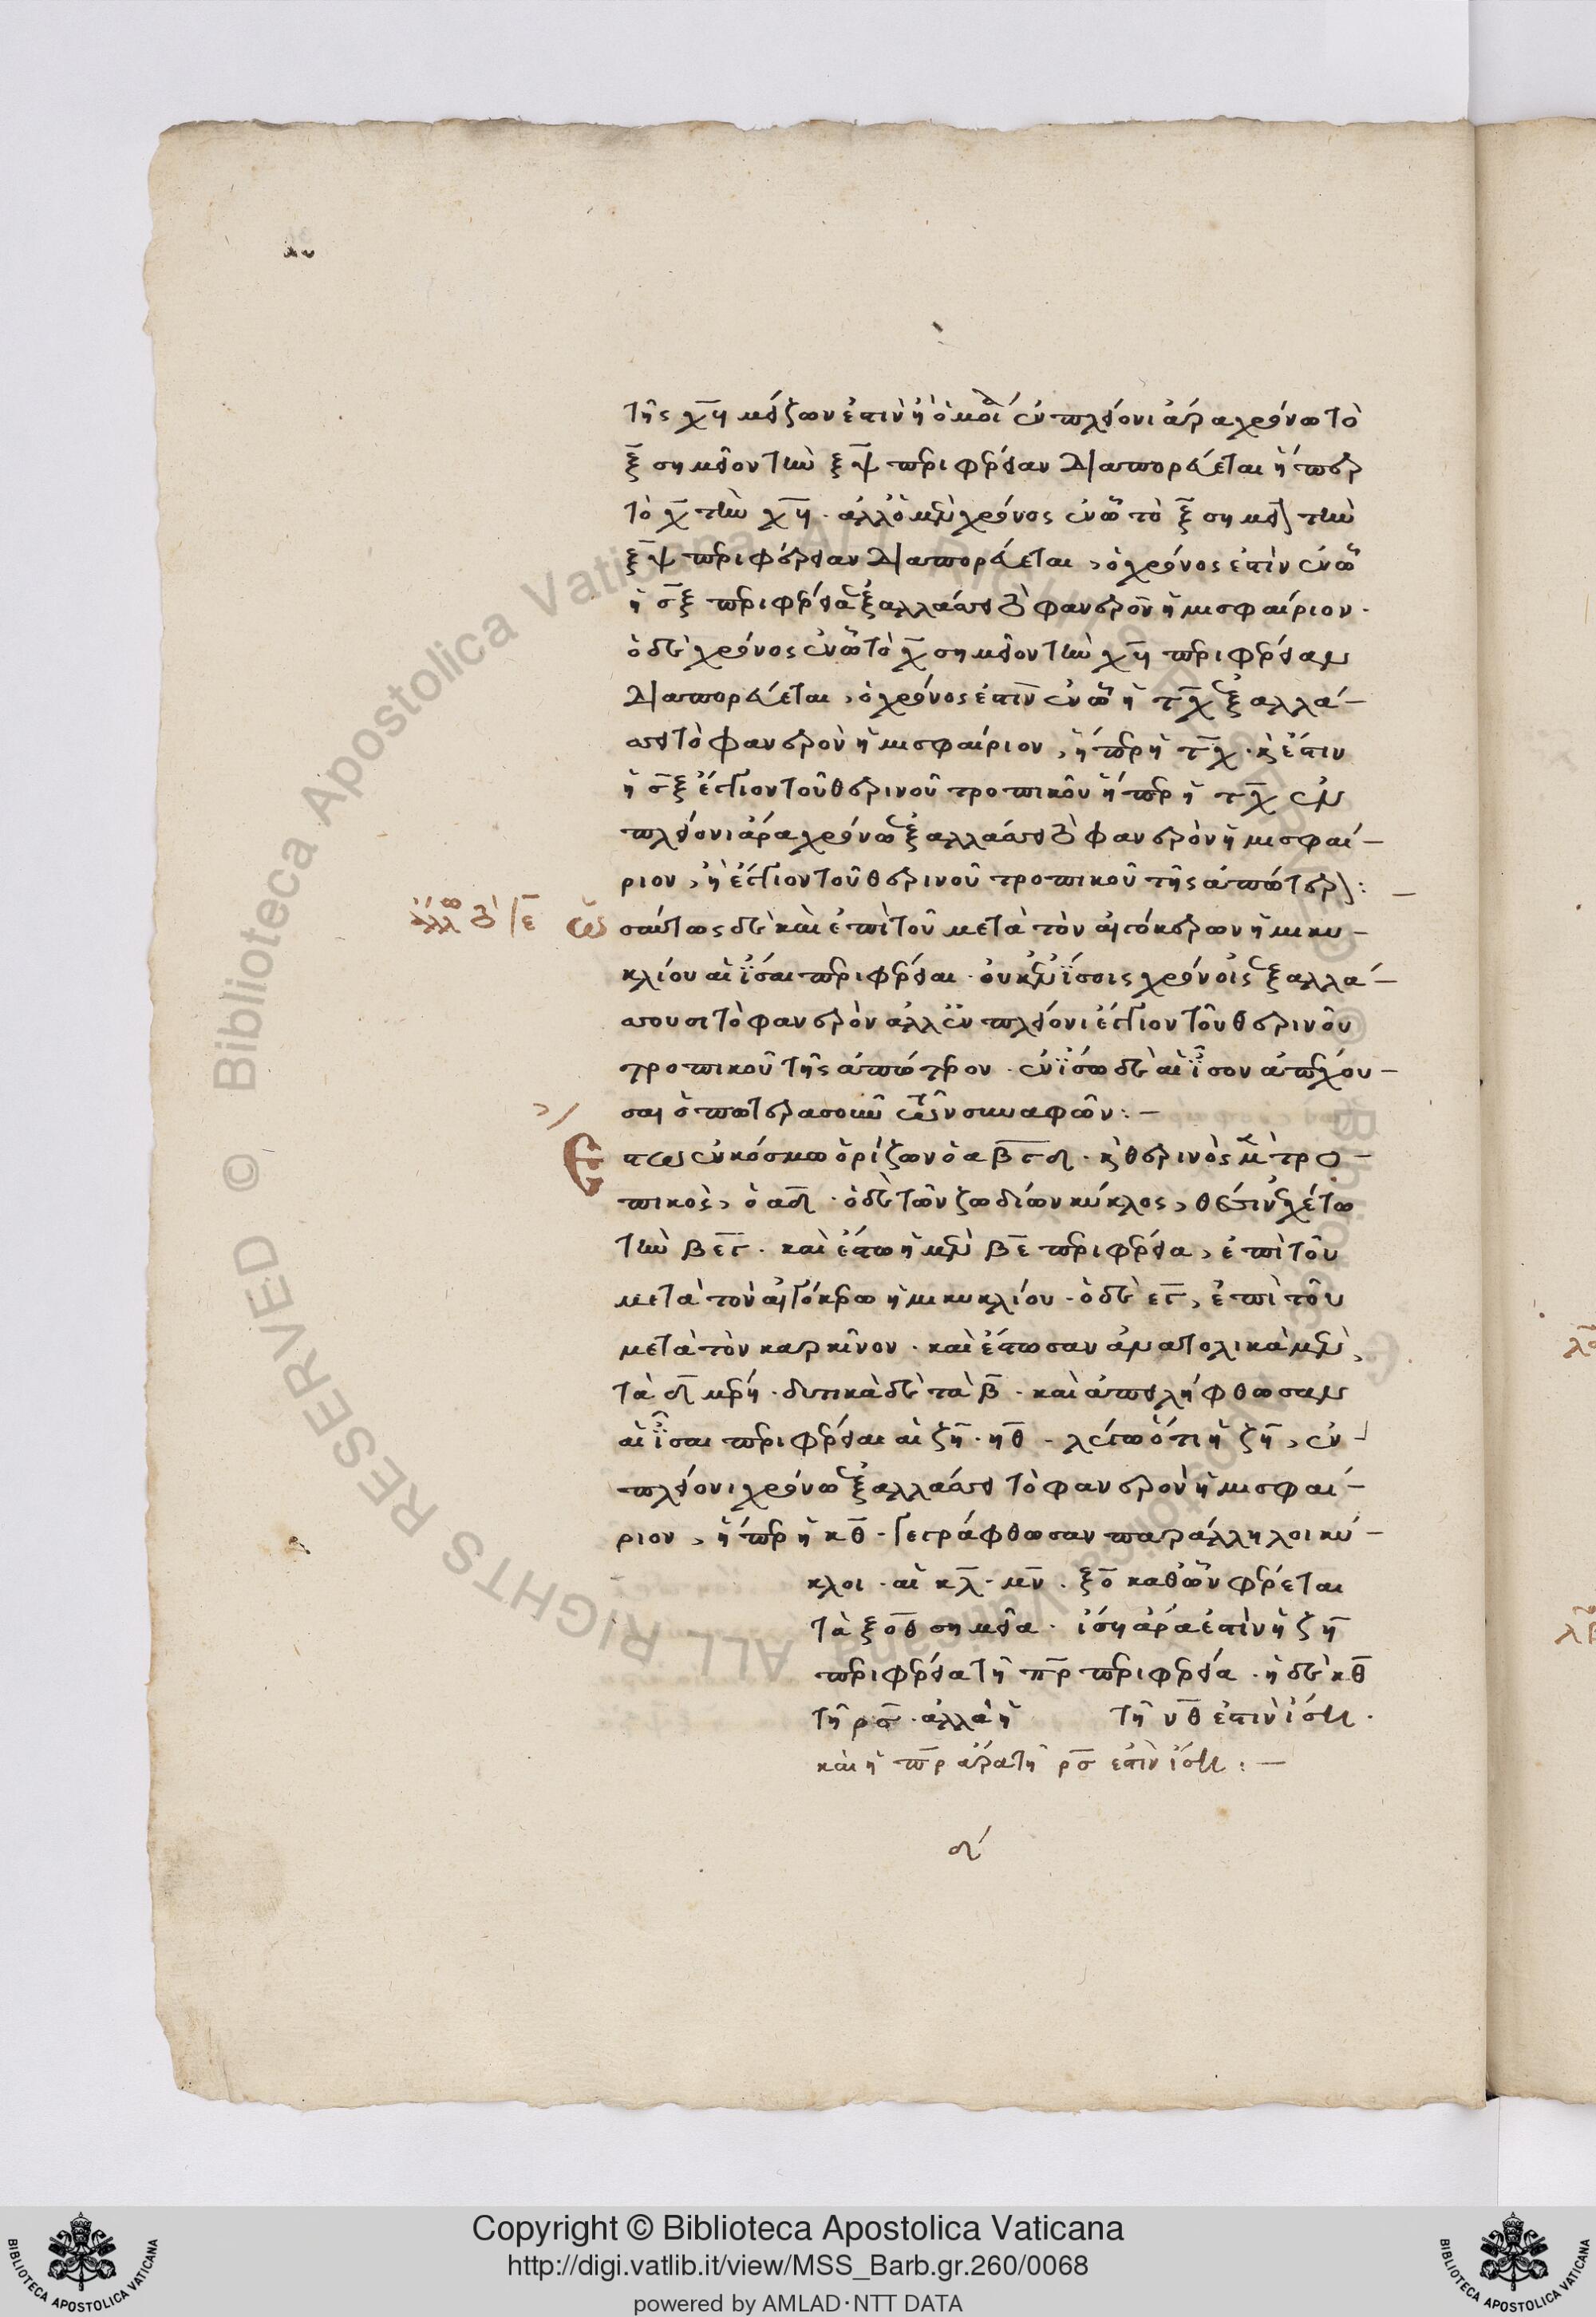 τῆς χ̅ψ̅ μείζων ἐστὶν ἢ ὁμοία ἐν πλείονι ἄρα χρόνω τὸ
ξ̅ σημεῖον τὴν ξ̅ψ̅ περιφέρειαν διαπορεύεται ἤπερ
τὸ χ̅ τὴν χ̅ψ̅. ἀλλ' ὁ μὲν χρόνος ἐν ὧ τὸ ξ̅ σημεῖον τὴν
ξ̅ψ̅ περιφέρειαν διαπορεύεται, ὁ χρόνος ἐστὶν ἐν ὧ
ἡ σ̅ξ̅ περιφέρεια ἐξαλλάσσει τὸ φανερὸν ἡμισφαίριον.
ὁ δὲ χρόνος ἐν ὧ τὸ χ̅ σημεῖον τὴν χ̅ψ̅ περιφέρειαν
διαπορεύεται, ὁ χρόνος ἐστὶν ἐν ὧ ἡ τ̅χ̅ ἐξαλλά-
σσει τὸ φανερὸν ἡμισφαίριον, ἤπερ ἡ τ̅χ̅. κ̀ ἔστιν
ἡ σ̅ξ̅ ἔγγιον τοῦ θερινοῦ τροπικοῦ ἤπερ ἡ τ̅χ̅ ἐν
πλείονι ἄρα χρόνω ἐξαλλάσσει τὸ φανερὸν ἡμισφαί-
ριον, ἡ ἔγγιον τοῦ θερινοῦ τροπικοῦ τῆς ἀπώτερον:
ὡσαύτως δὲ καὶ ἐπὶ τοῦ μετὰ τὸν αἰγόκερων ἡμικυ-
κλίου αἱ ἴσαι περιφέρειαι. οὐκ ἐν ἴσοις χρόνοις ἐξαλλά-
σσουσι τὸ φανερὸν ἀλλ' ἐν πλείονι ἔγγιον τοῦ θερινοῦ
τροπικοῦ τῆς ἀπώτερον. ἐν ἴσω δὲ αἱ ἴσον ἀπέχου-
σαι ὁποτερασοῦν τῶν συναφῶν:-
Ἔστω ἐν κόσμω ὁρίζων ὁ α̅β̅γ̅δ̅. κ̀ θερινὸς μὲν τρο-
πικὸς, ὁ α̅δ̅. ὁ δὲ τῶν ζωδίων κύκλος, θέσιν ἐχέτω
τὴν β̅ε̅γ̅. καὶ ἔστω ἡ μὲν β̅ε̅ περιφέρεια, ἐπὶ τοῦ
μετὰ τὸν αἰγόκερω ἡμικυκλίου. ὁ δὲ ε̅γ̅, ἐπὶ τοῦ
μετὰ τὸν καρκῖνον. καὶ ἔστωσαν ἀνατολικὰ μὲν,
τὰ δ̅ μέρη. δυτικὰ δὲ τὰ β̅. καὶ ἀπειλήφθωσαν
αἱ ἴσαι περιφέρειαι αἱ ζ̅η̅. η̅θ̅. λέγω ὅτι ἡ ζ̅η̅, ἐν
πλείονι χρόνω ἐξαλλάσσει τὸ φανερὸν ἡμισφαί-
ριον, ἤπερ ἡ κ̅θ̅. γεγράφθωσαν παράλληλοι κύ-
κλοι. αἱ κ̅λ̅. μ̅ν̅. ξ̅ο̅ καθ' ὧν φέρεται
τὰ ξ̅ο̅θ̅ σημεῖα. ἴση ἄρα ἐστὶν ἡ ζ̅η̅
περιφέρεια τῆ π̅ρ̅ περιφερεία. ἡ δὲ κ̅θ̅
τῆ ρ̅σ̅. ἀλλὰ ἡ τῆ ν̅θ̅ ἐστὶν ἴση.
καὶ ἡ π̅ρ̅ ἄρα τῆ ρ̅σ̅ ἐστὶν ἴση:-
δ'
Copyright © Biblioteca Apostolica Vaticana
http://digi.vatlib.it/view/MSS_Barb.gr.260/0068
powered by AMLAD·NTT DATA
© Biblioteca Apostolica Vaticana ALL RIGHTS RESERVED
BIBLIOTECA APOSTOLICA VATICANA
BIBLIOTECA APOSTOLICA VATICANA